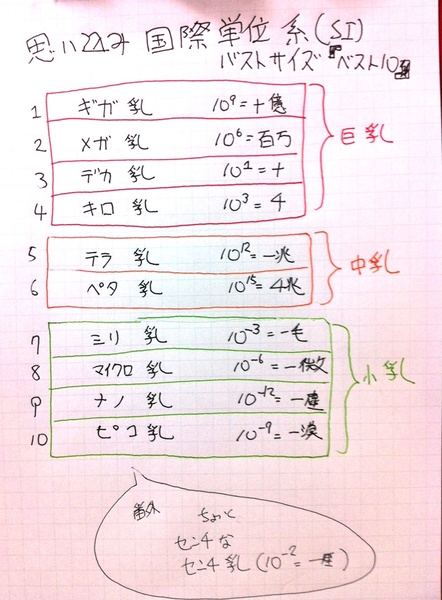 思い込み 国際単位系(SI)
バストサイズ『ベスト10』
1 ギガ乳 10⁹=十億
2 メガ乳 10⁶=百万
3 デカ乳 10¹=十
4 キロ乳 10³=千
巨乳
5 テラ乳 10¹²=一兆
6 ペタ乳 10¹⁵=千兆
中乳
7 ミリ乳 10⁻³=一毛
8 マイクロ乳 10⁻⁶=一微
9 ナノ乳 10⁻¹²=一
10 ピコ乳 10⁻⁹=一漠
小乳
番外 ちょいと
センチな
センチ乳(10⁻²=一)